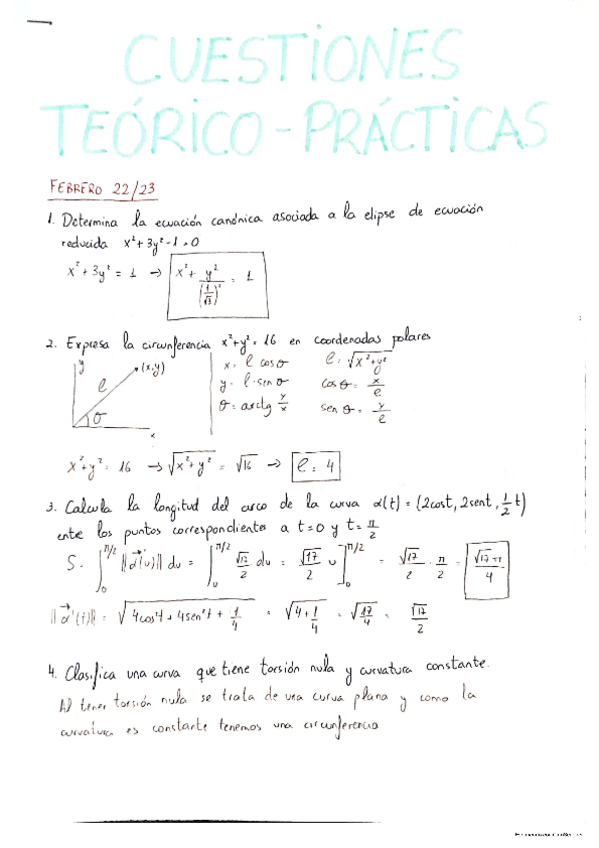 CUESTIONES
TEÓRICO-PRÁCTICAS
FEBRERO 22/23
1. Determina la ecuación canónica asociada a la elipse de ecuación
reducida x²+3y²-1=0
x²+3y² = 1 → x² + y²/(1/√3)² = 1
2. Expresa la circunferencia x²+y²=16 en coordenadas polares
y
(x,y)
ρ
θ
x
x = ρ cos θ
y = ρ · sen θ
θ = arctg y/x
ρ = √x²+y²
cos θ = x/ρ
sen θ = y/ρ
x²+y² = 16 → √x²+y² = √16 → ρ = 4
3. Calcula la longitud del arco de la curva α(t) = (2cost, 2sent, ½t)
ente los puntos correspondientes a t=0 y t=π/2
S = ∫₀^π/2 ||α'(u)|| du = ∫₀^π/2 √17/2 du = √17/2 u]₀^π/2 = √17/2 · π/2 = √17 π/4
||α'(t)|| = √4cos²t + 4sen²t + 1/4 = √4+1/4 = √17/4 = √17/2
4. Clasifica una curva que tiene torsión nula y curvatura constante.
Al tener torsión nula se trata de una curva plana y como la
curvatura es constante tenemos una circunferencia